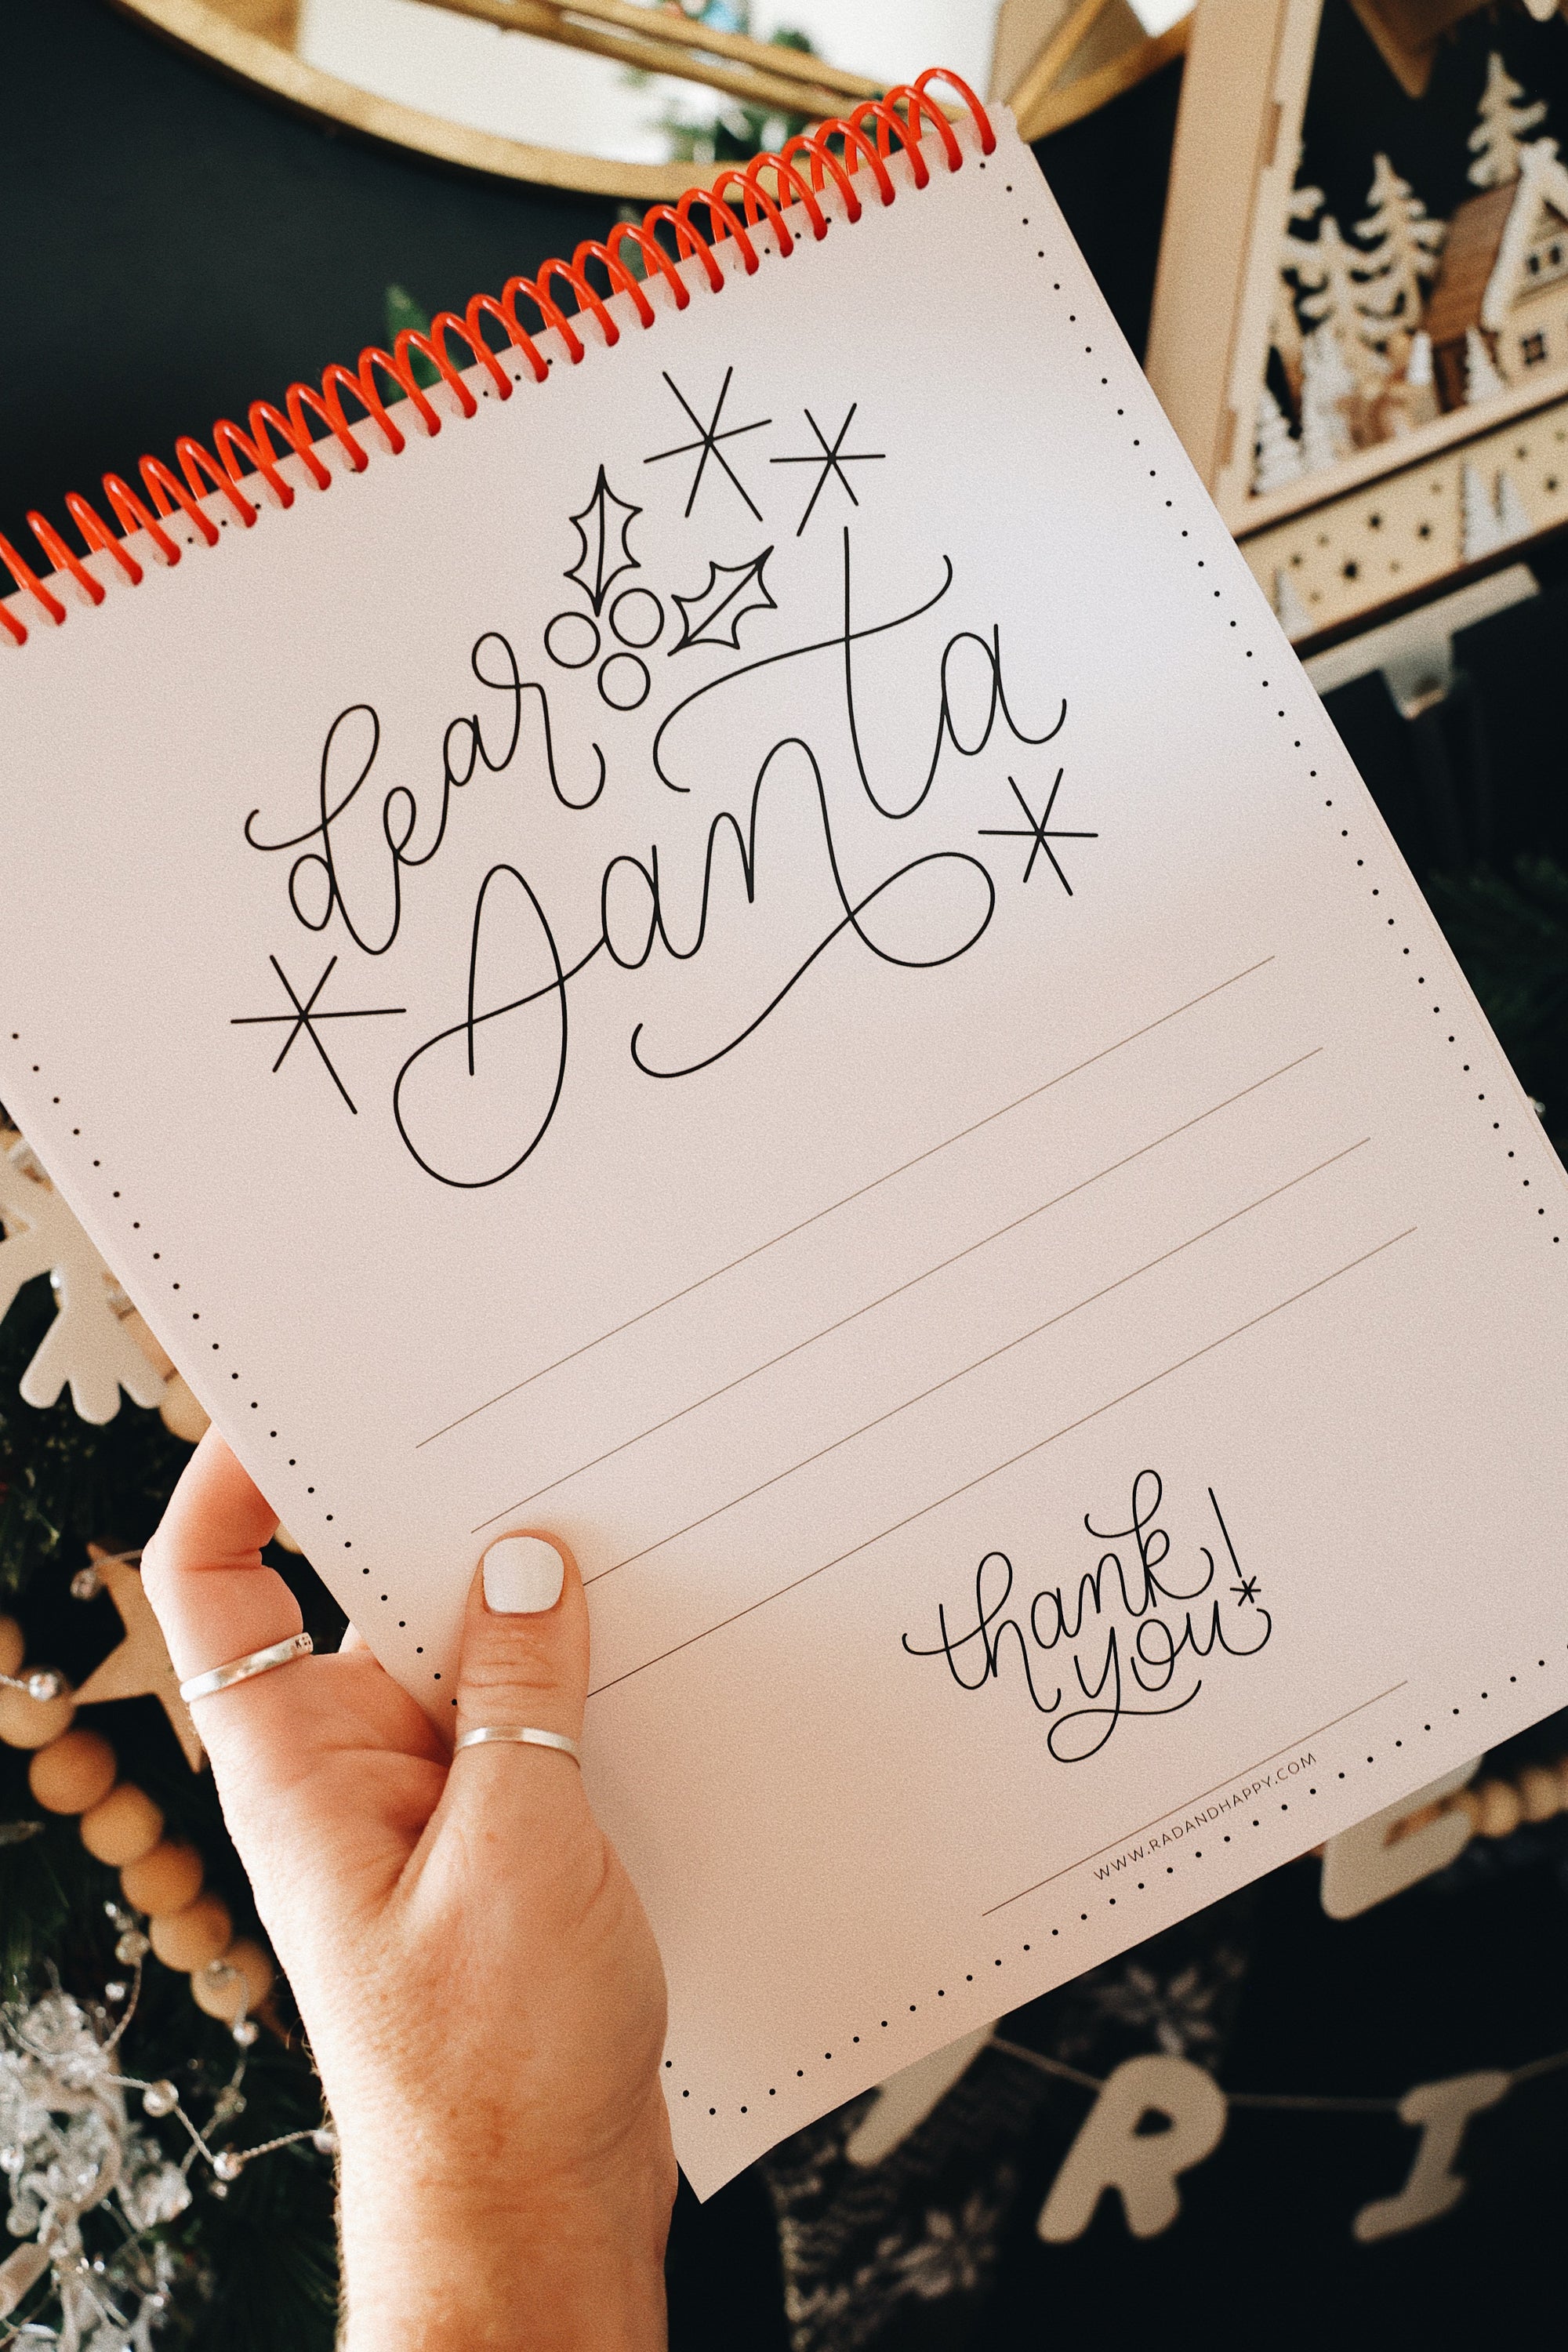 dear
Santa
thank
you!
WWW.RADANDHAPPY.COM
R I